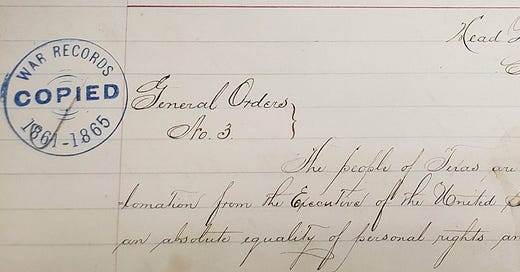 WAR RECORDS
COPIED
1861-1865
Head
General Orders
No. 3.
The people of Texas are
-lamation from the Executive of the United
an absolute equality of personal rights an